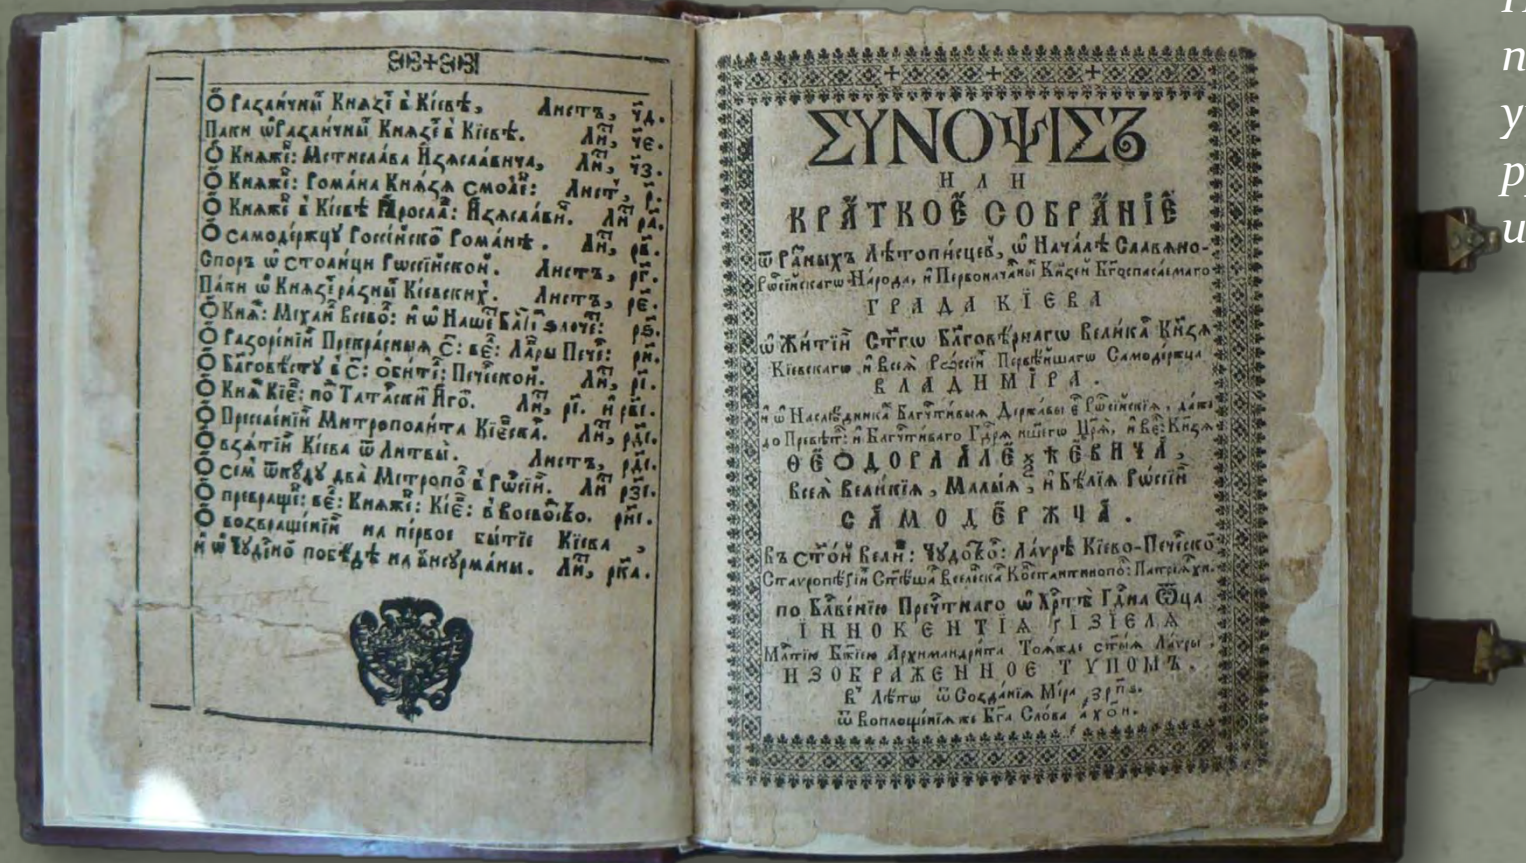 Ѻ Разли́чны̑ Кнѧзе̑ в̾ Кі́евѣ, Листъ, ч҃д.
Паки ѡ҆ Разли́чны̑ Кнѧзе̑ в̾ Кі́евѣ. Ли̑, ч҃е.
Ѻ Кнѧже̑: Мстисла́ва И҆зѧсла́вича, Ли̑, ч҃з.
Ѻ Кнѧже̑: Рома́на Кнѧ́зѧ Смоле̑: Лист̾, р҃.
Ѻ Кнѧже̑ в̾ Кі́евѣ Ꙗ҆росла̑: И҆зѧсла́ви̑. Ли̑ р҃а.
Ѻ Самоде́ржцу Росси́йско̑ Рома́нѣ. Ли̑, р҃в.
Споръ ѡ҆ Столи́ци Рѡссі́йской. Листъ, р҃г.
Па́ки ѡ҆ Кнѧзе̑ ра́зны̑ Кі́евских̾. Листъ, р҃е.
Ѻ Кнѧ̑: Михаи̑ Все́во̑: и҆ ѡ҆ Наше̑ Ѕлоче̑: р҃ѕ.
Ѻ Разоре́нїи Прекра́сныѧ С̑: ве̑: Ла́ры Пече̑: р҃и.
Ѻ Бл҃гове́сту в̾ С̑: Ѻби́те̑: Пече́ской. Ли̑, р҃і.
Ѻ Кнѧ̑ Кіе̑: по̑ Тата́рски̑ И҆го̑. Ли̑, р҃і. и҆ р҃ві.
Ѻ Преселе́нїи Митрополи́та Кіе́вска̑. Ли̑, р҃ді.
Ѻ взѧ́тїи Кі́ева ѿ Литвы̀. Листъ, р҃ді.
Ѻ сем̾ ѿку́ду два̀ Митропо̑ в̾ Рѡссі́и. Ли̑ р҃зі.
Ѻ превраще̑: ве̑: Кнѧже̑: Кіе̑: в̾ Воево̑во. р҃иі.
Ѻ возвраще́нїи на пе́рвое бытїе Кі́ева,
и҆ ѡ҆ Чу́дно̑ побѣ́дѣ на̑ Бисурма́ны. Ли̑, р҃ка.
ΣΥΝΟΨΙΣЪ
ИЛИ
КРА́ТКОЕ СОБРА́НЇЕ
ѿ Ра́зныхъ Лѣтопи́сцев̾, ѡ҆ Нача́лѣ Славѧно-
Рѡссі́йскагѡ Наро́да, и҆ Первонача́лны̑ Кнѧ҃зей Бг҃оспаса́емагѡ
ГРАДА КІЕВА
ѡ҆ Житїи̑ Ст҃гѡ Бл҃гове́рнагѡ Вели́ка̑ Кнѧ҃зѧ
Кі́евскагѡ и҆ Всеѧ̀ Рѡссі́и Перве́йшагѡ Самоде́ржца
ВЛАДИМІРА.
и҆ ѡ҆ Наслѣ́дника̑ Бл҃гчти́выѧ Держа́вы е҆гѡ̀ Рѡссі́йскїѧ, да́же
до Пресвѣ̑: и҆ Бл҃гчти́ваго Гд҃рѧ на́шегѡ Цр҃ѧ, и҆ Ве̑: Кнѧ҃зѧ
ѲЕѺДОРА АЛЕѮѢЕВИЧА,
Всеѧ̀ Вели́кїѧ, Ма́лыѧ, и҆ Бѣ́лїѧ Рѡссі́и
САМОДЕРЖЧА.
Въ Ст҃о́й Вели̑: Чудово̑: Ла́врѣ Кіево-Пече́ско̑
Ставропѣ́гїи Ст҃ѣ́йша Вселе́нска Ко̑стантинопо̑: Патрїа́рхи.
по Блв҃е́нїю Преч҃тнаго ѡ҆ Хрⷭ҇тѣ̀ Гд҃на Ѻ҆ц҃а̀
ІННОКЕНТІѦ ГІЗІЕЛѦ
Млⷭ҇тїю Бж҃їею Архимандри́та Тоѧ́жде ст҃ы́ѧ Ла́вры.
ИЗОБРАЖЕННОЕ ТУПОМЪ.
В̾ Лѣ́тѡ ѿ Созда́нїѧ Мі́ра ҂зрп҃в.
ѿ Воплоще́нїѧ же Бг҃а Сло́ва ҂ахо҃и.